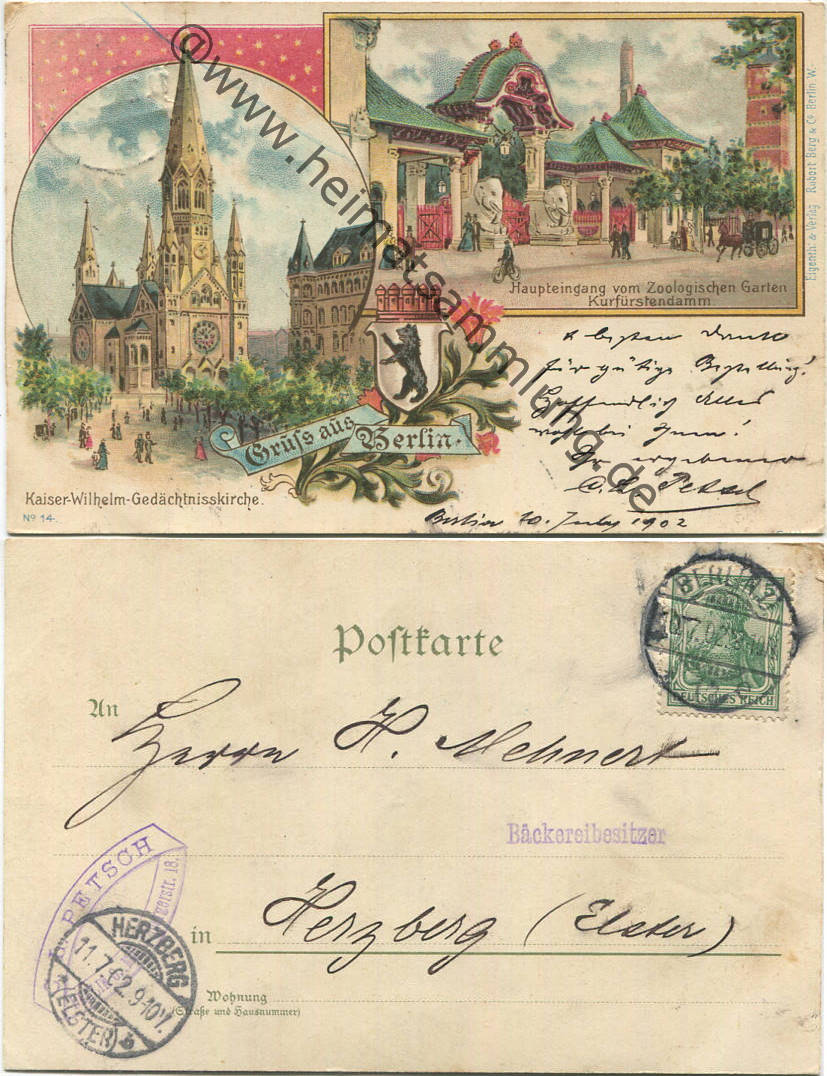 @www.heimatsammlung.de
Haupteingang vom Zoologischen Garten
Kurfürstendamm
Eigenth. & Verlag Rubort Berg & Co. Berlin W.
besten Dank
für gütige Bestellung!
Hoffendlich Alles
wohl bei Ihnen!
Ihr ergebener
Petsch
Berlin 10. July 1902
Gruſs aus Berlin.
Kaiser-Wilhelm-Gedächtnisskirche.
No 14.
Poſtkarte
BERLIN
7.02.
DEUTSCHES REICH
An
Herrn H. Mehnert
Bäckereibesitzer
PETSCH
str. 18.
in Herzberg (Elster)
HERZBERG
11.7.02.9-10V.
(ELSTER)
b
Wohnung
(Straße und Hausnummer)